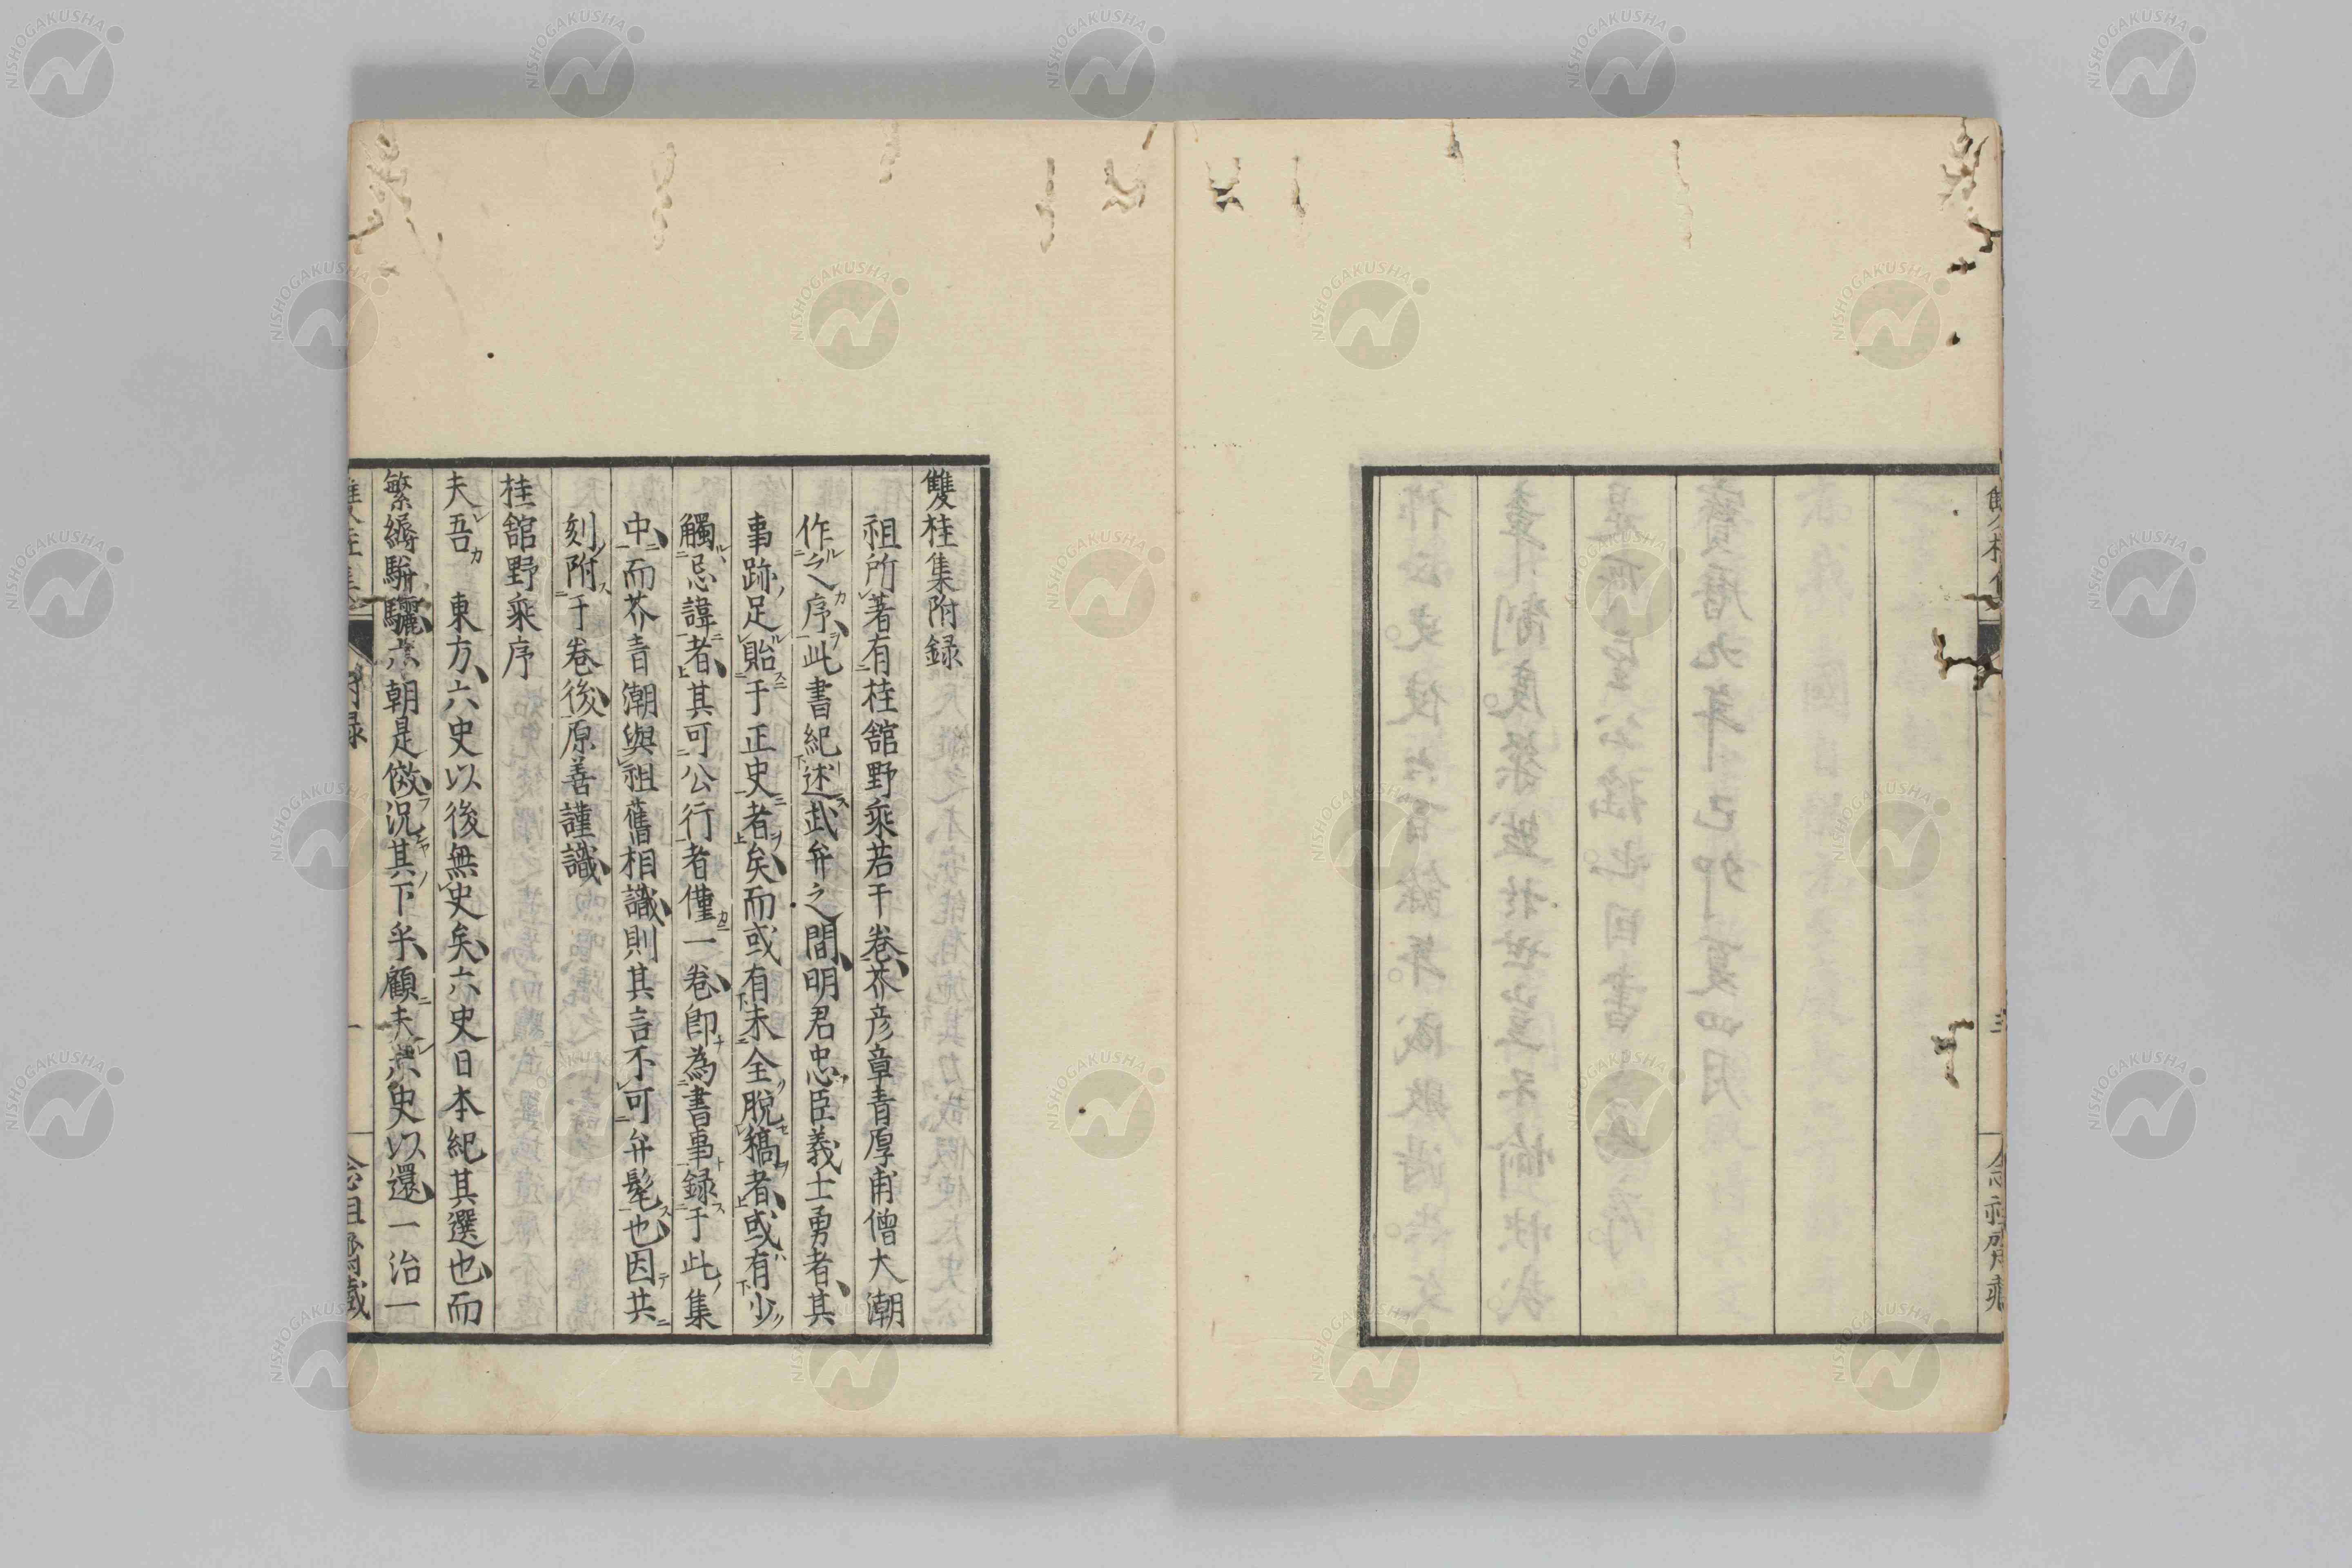 雙桂集附録
祖所著有桂舘野乘若干卷芥彦章青厚甫僧大潮
作之序此書紀述武弁之間明君忠臣義士勇者其
事跡足貽于正史者矣而或有未全脱稿者或有少
觸忌諱者其可公行者僅一二卷卽為書事録于此集
中而芥青潮與祖舊相識則其言不可弁髦也因共
刻附于卷後原善謹識
桂舘野乘序
夫吾 東方六史以後無史矣六史日本紀其選也而
繁縟駢驪六朝是傚況其下乎顧夫無史以還一治一
雙桂集 附録 一 念祖齋藏
雙桂集 三 念祖齋藏
NISHOGAKUSHA